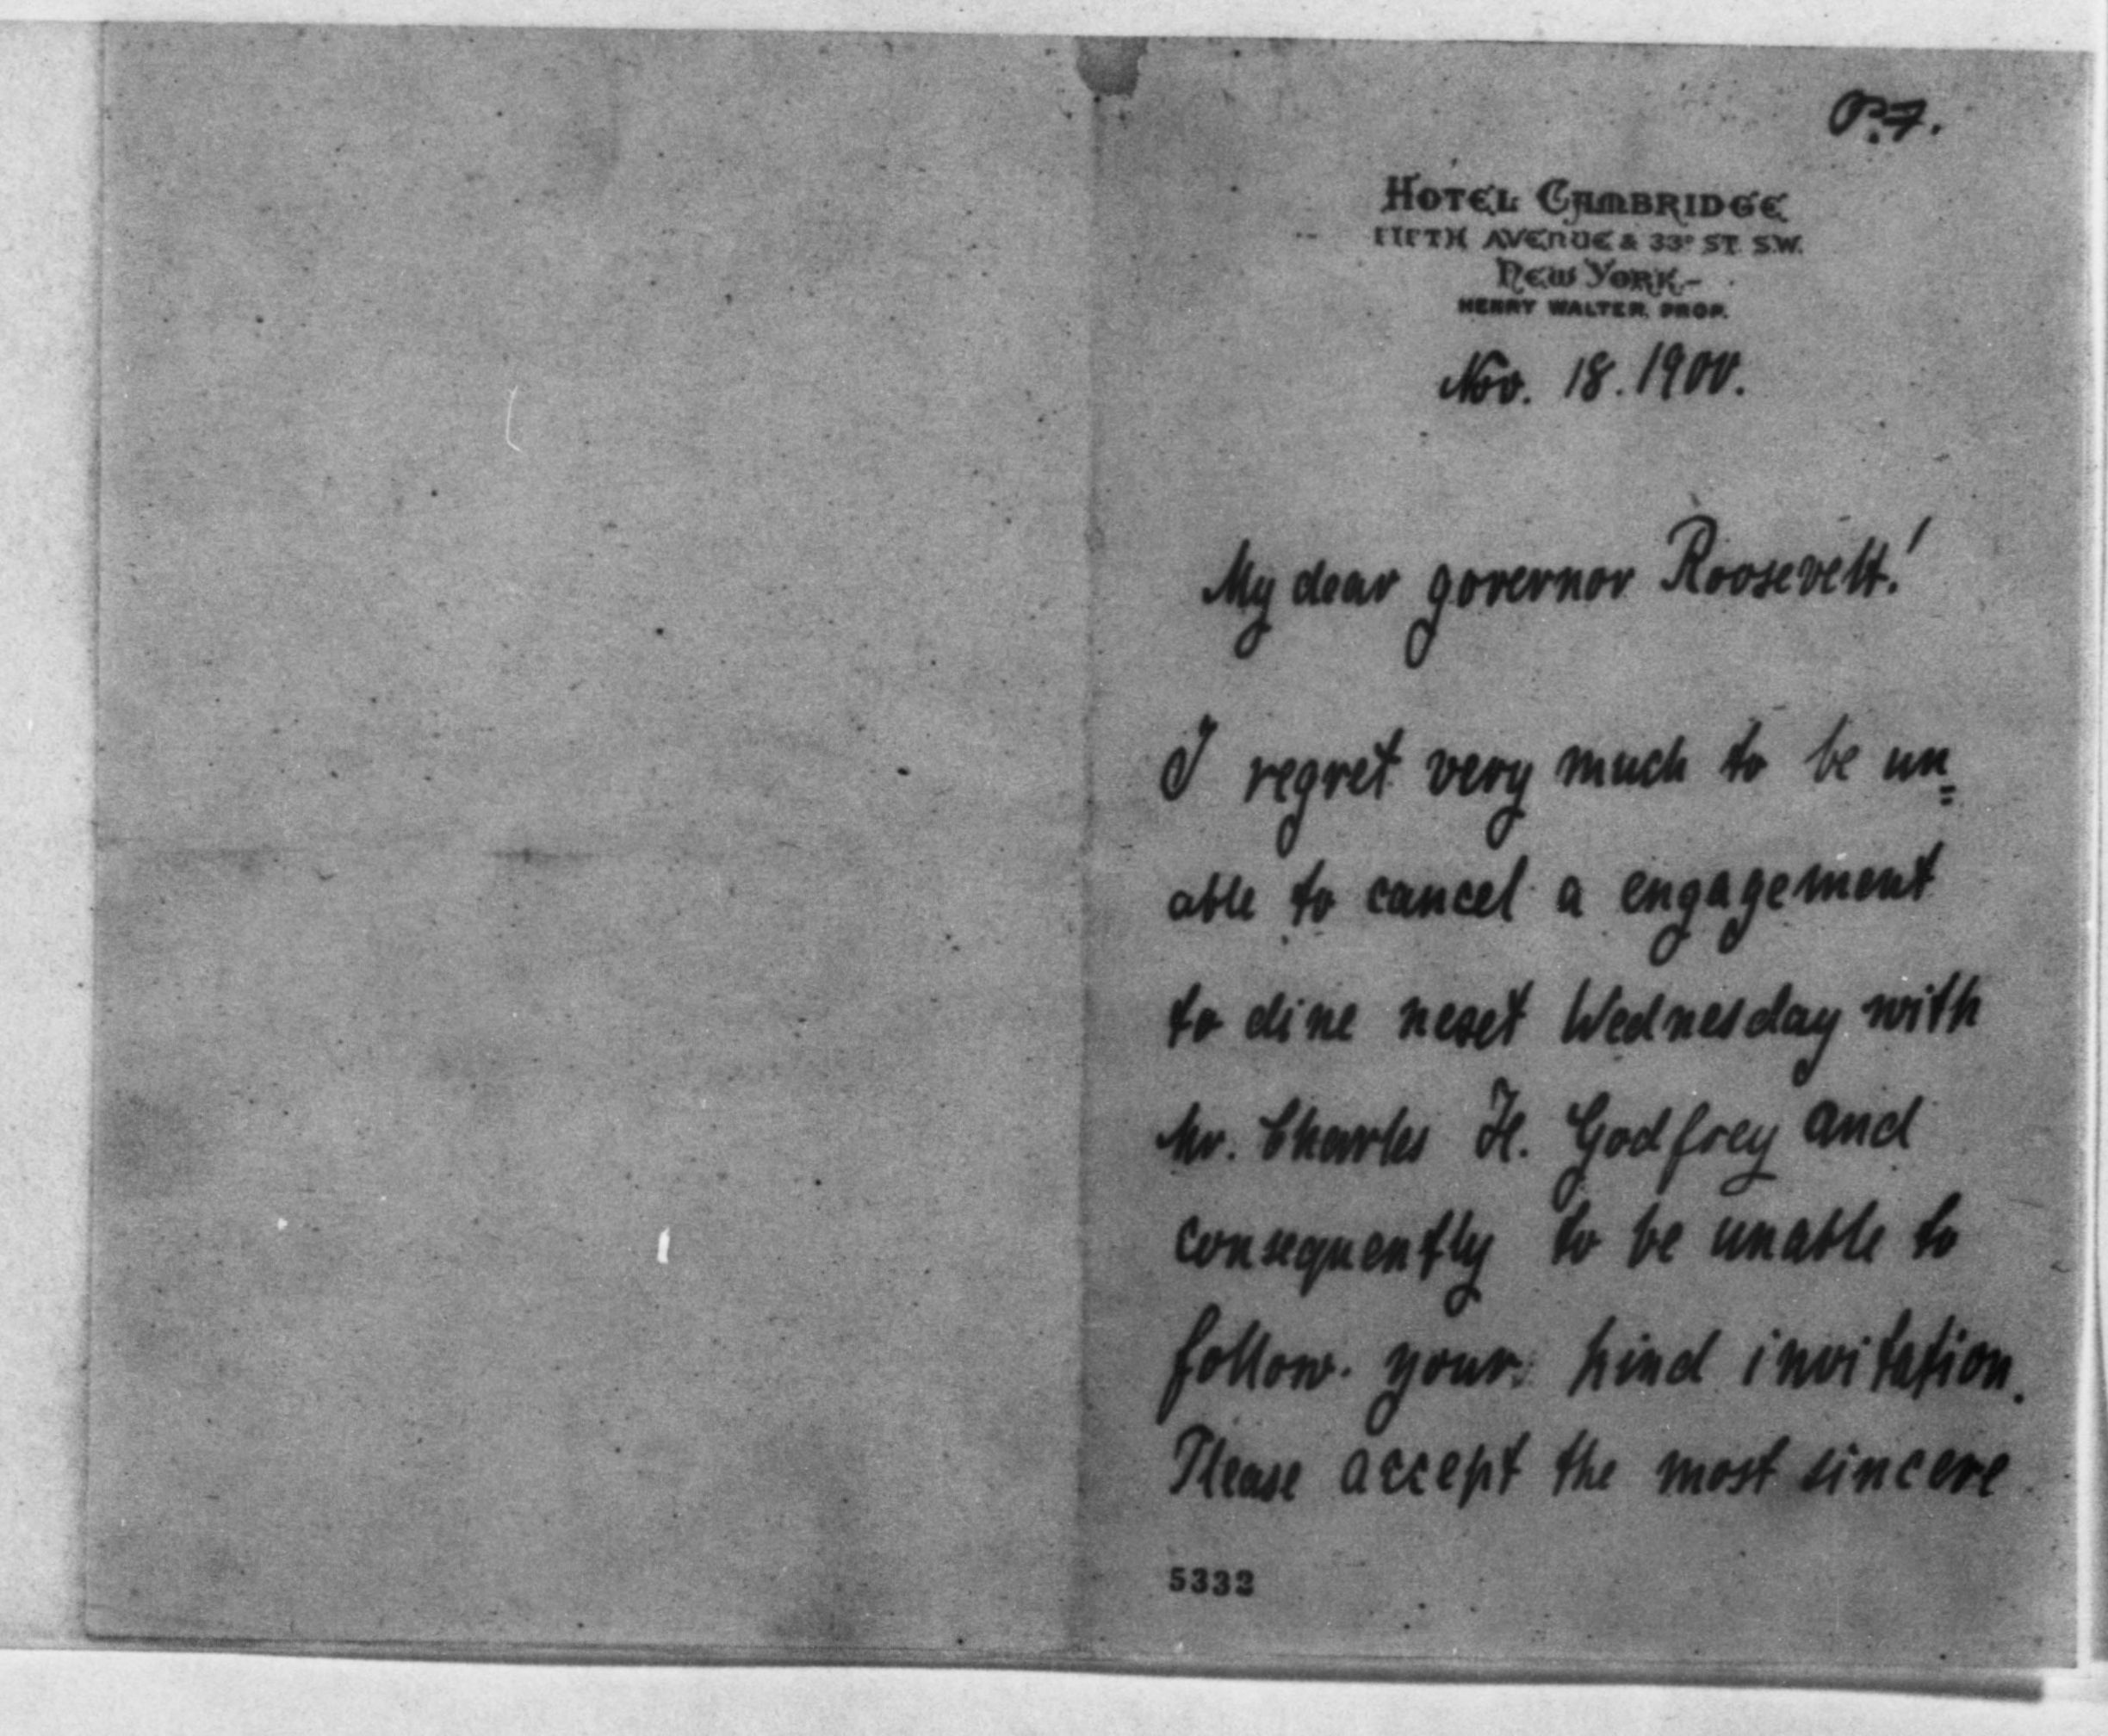 P.F.
HOTEL CAMBRIDGE
FIFTH AVENUE & 33D ST. S.W.
NEW YORK-
HENRY WALTER, PROP.
Nov. 18. 1900.
My dear governor Roosevelt!
I regret very much to be un=
able to cancel a engagement
to dine next Wednesday with
Mr. Charles H. Godfrey and
consequently to be unable to
follow your kind invitation.
Please accept the most sincere
5332